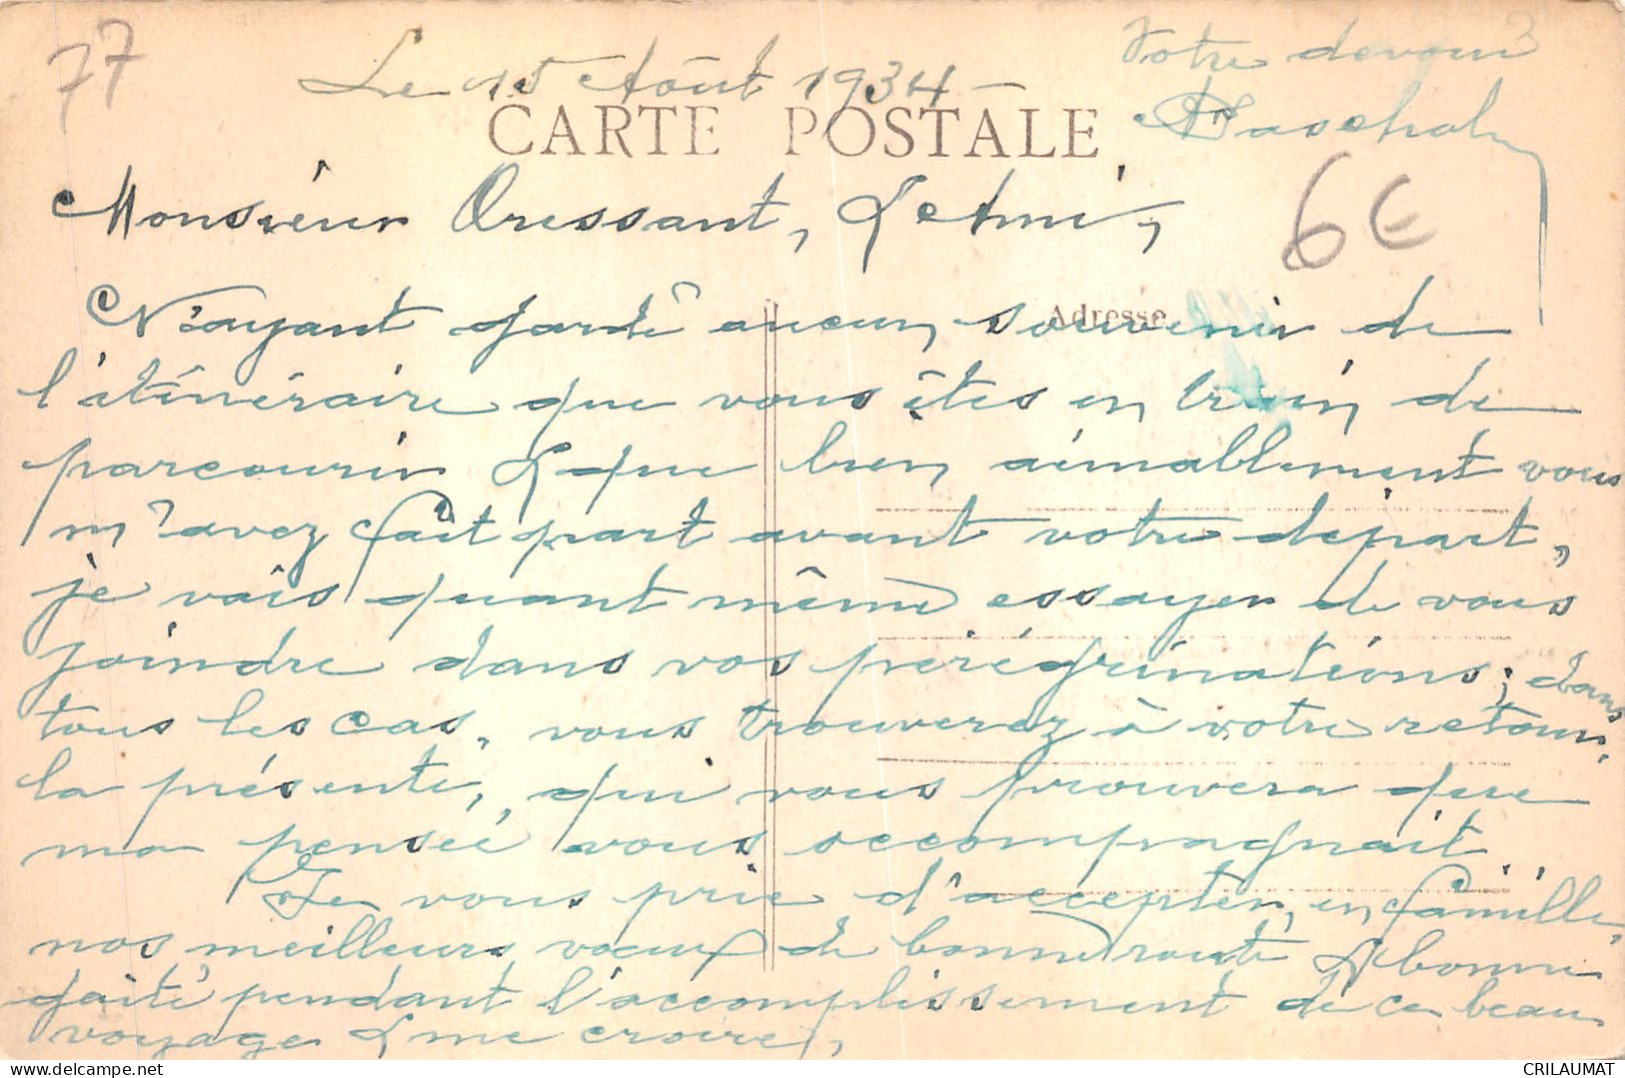 77
Le 15 Août 1934 -
CARTE POSTALE
Monsieur Oressant, & Ami,
6€
Adresse
N'ayant gardé aucun souvenir de
l'itinéraire que vous êtes en train de
parcourir & que bien aimablement vous
m'avez fait part avant votre départ,
je vais quant même essayer de vous
joindre dans vos pérégrinations; dans
tous les cas, vous trouverez à votre retour,
la présente, qui vous prouvera que
ma pensée vous accompagnait.
Je vous prie d'accepter, en famille,
nos meilleurs voeux de bonne route & bonne
gaité pendant l'accomplissement de ce beau
voyage & me croire,
Votre dévoué
Paschal
CRILAUMAT
https://www.delcampe.net